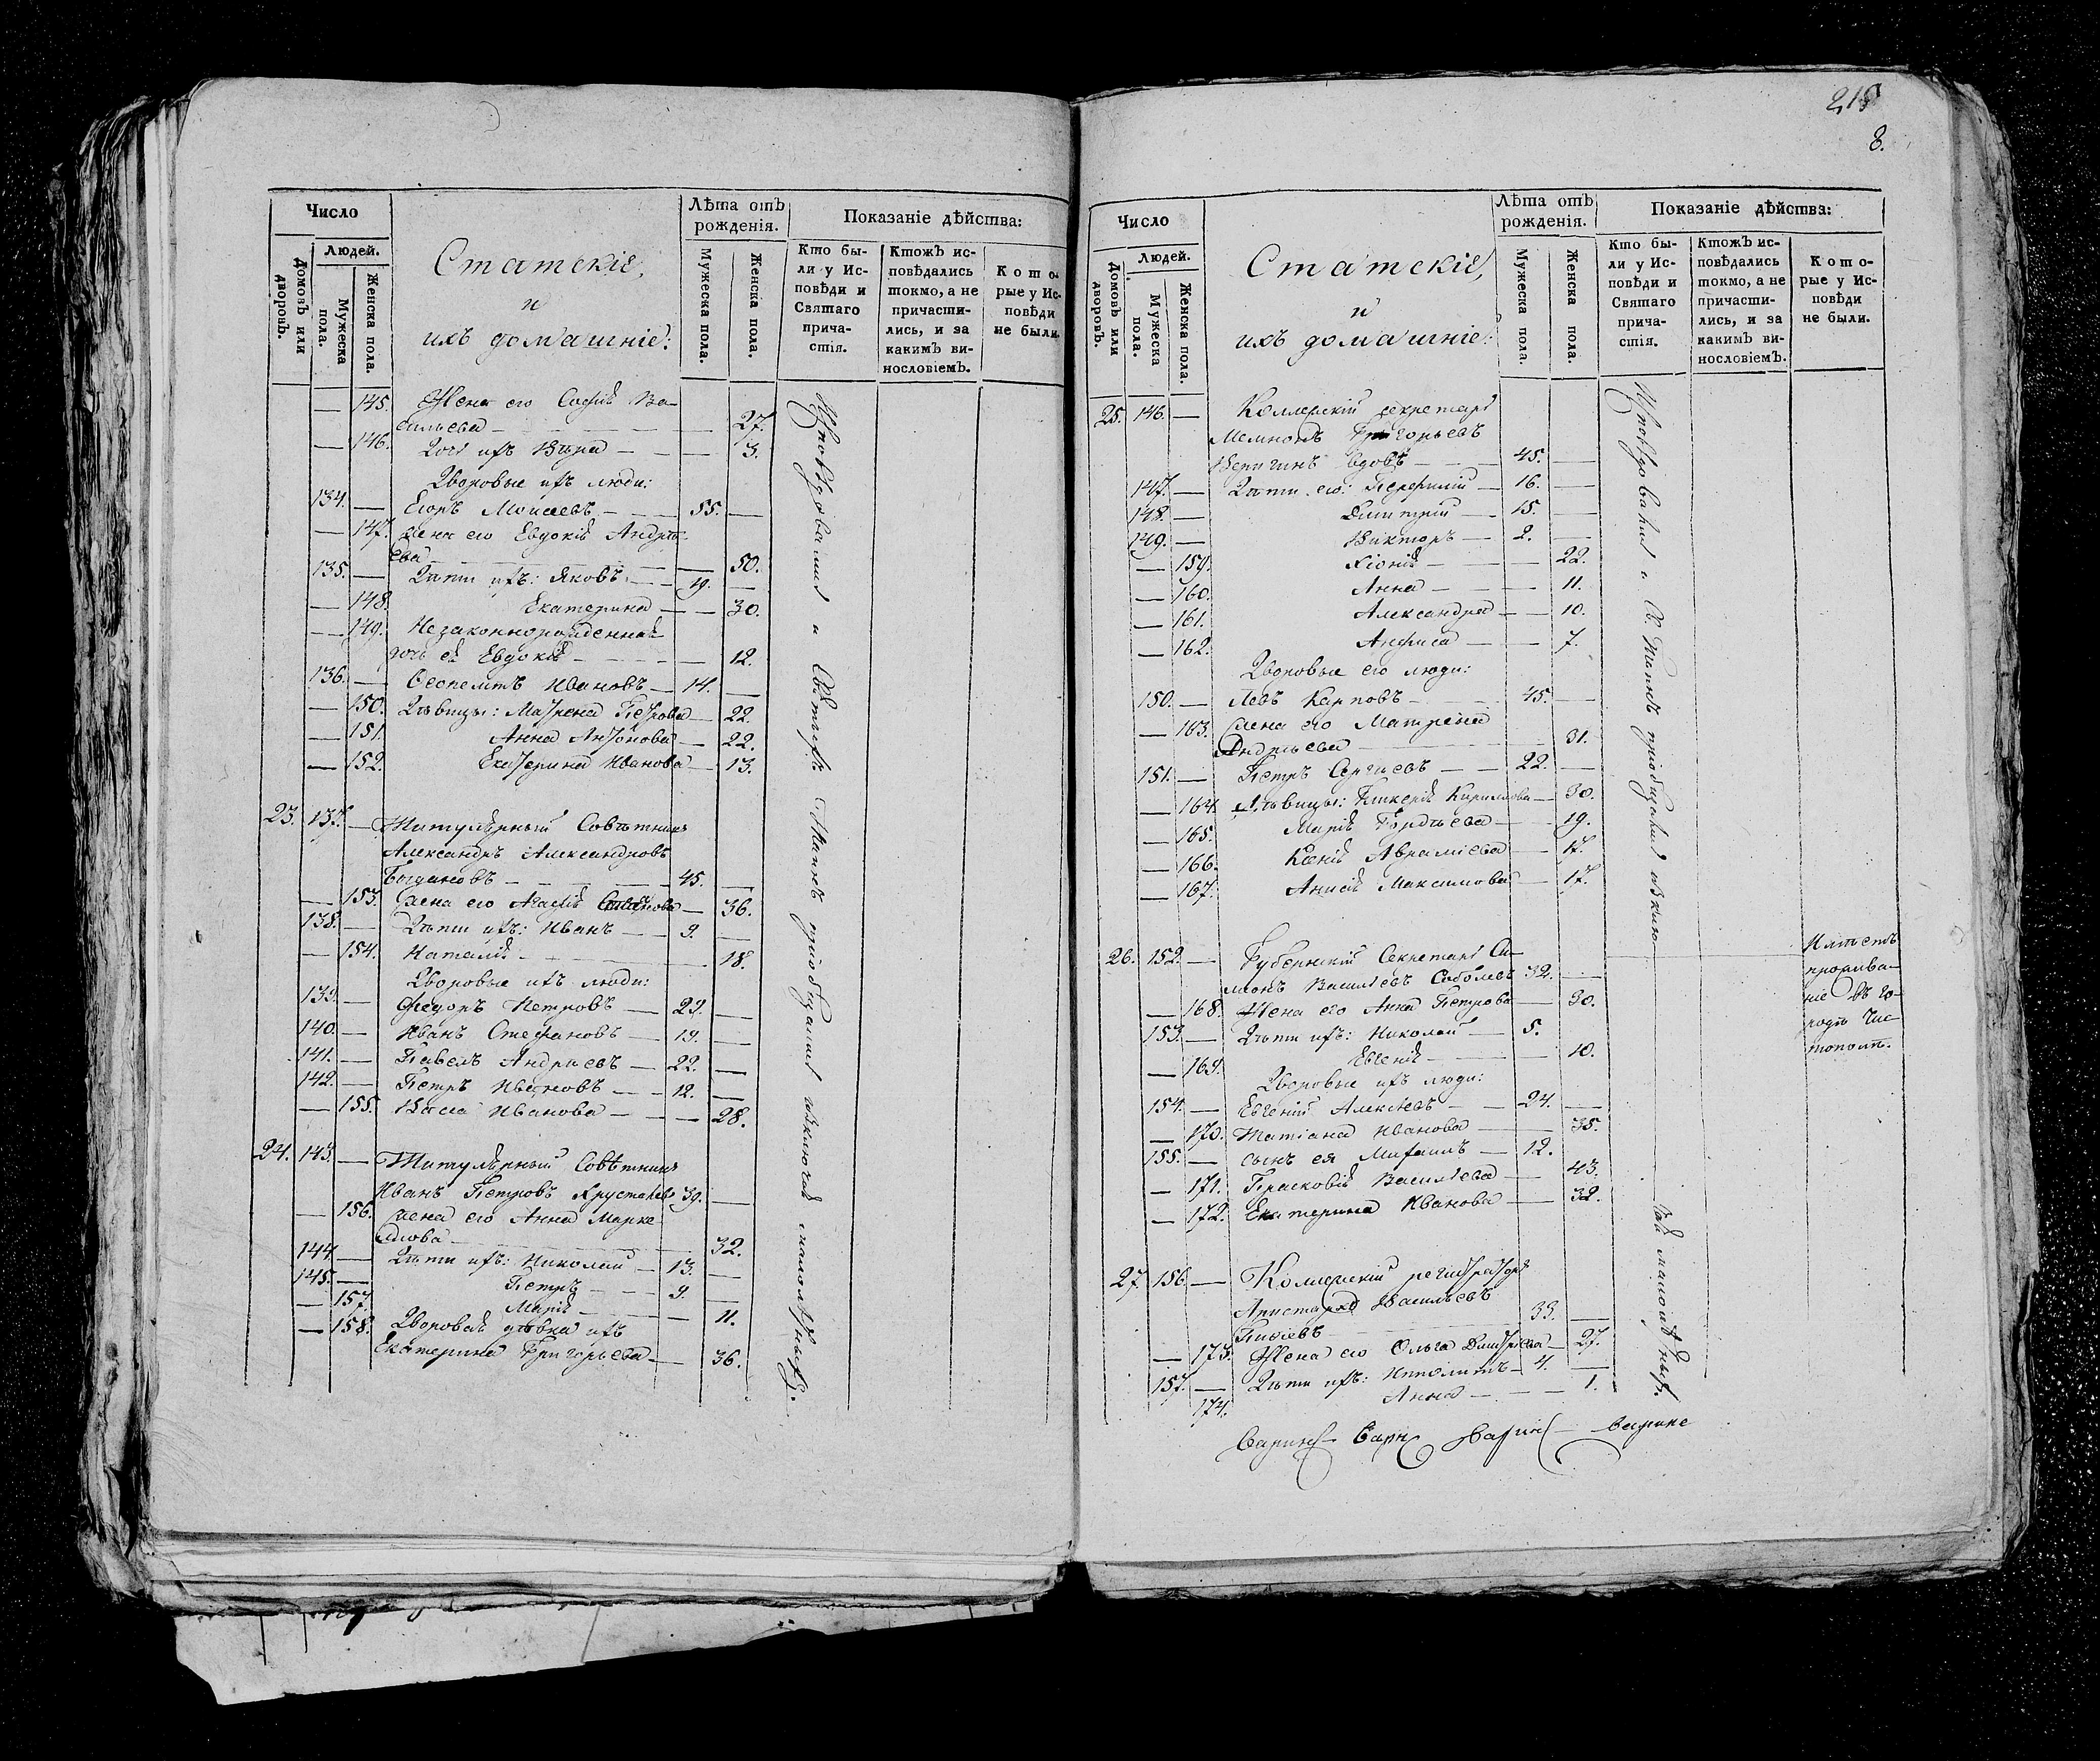 Число
Людей.
Домовъ или дворовъ.
Мужеска пола.
Женска пола.
Статскіе,
и
ихъ домашніе:
Лѣта отъ
рожденія.
Мужеска пола.
Женска пола.
Показаніе дѣйства:
Кто бы-
ли у Ис-
повѣди и
Святаго
прича-
стія.
Ктожъ ис-
повѣдались
токмо, а не
причасти-
лись, и за
какимъ ви-
нословіемъ.
Кото-
рые у Ис-
повѣди
не были.
— 145. Жена его Софія Ва-
сильева — — 27.
— 146. Дочь ихъ Вѣра — — 3.
Дворовые ихъ люди:
134. — Егоръ Моисеевъ — 55. —
— 147. Жена его Евдокія Андрѣ-
ева — — 50.
135. — Дѣти ихъ: Яковъ — 19. —
— 148. Екатерина — — 30.
— 149. Незаконнорожденная
дочь ея Евдокія — — 12.
136. — Ивановъ — 14. —
— 150. Дѣвицы: Матрена Петрова — 22.
— 151. Анна Антонова — 22.
— 152. Екатерина Иванова — 13.
23. 137. — Титулярный Совѣтникъ
Александръ Александровъ
Богдановъ — 45. —
— 153. Жена его — 36.
138. — Дѣти ихъ: Иванъ — 9. —
— 154. Наталія — — 18.
Дворовые ихъ люди:
139. — Федоръ Петровъ — 29. —
140. — Иванъ Стефановъ — 19. —
141. — Павелъ Андреевъ — 22. —
142. — Петръ Ивановъ — 12. —
— 155. Васса Иванова — — 28.
24. 143. — Титулярный Совѣтникъ
Иванъ Петровъ Хрусталевъ 39. —
— 156. Жена его Анна Марке-
лова — — 32.
144. — Дѣти ихъ: Николай — 13. —
145. — Петръ — 9. —
— 157. Марія — — 11.
— 158. Дворовая дѣвка ихъ
Екатерина Григорьева — 36.
Исповѣдовались и Святыхъ Таинъ пріобщались исключая малолѣтныхъ.
218
8.
Число
Людей.
Домовъ или дворовъ.
Мужеска пола.
Женска пола.
Статскіе,
и
ихъ домашніе:
Лѣта отъ
рожденія.
Мужеска пола.
Женска пола.
Показаніе дѣйства:
Кто бы-
ли у Ис-
повѣди и
Святаго
прича-
стія.
Ктожъ ис-
повѣдались
токмо, а не
причасти-
лись, и за
какимъ ви-
нословіемъ.
Кото-
рые у Ис-
повѣди
не были.
25. 146. — Коллежскій секретарь
Мемнонъ Григорьевъ
Веригинъ вдовъ — 45. —
147. — Дѣти его: Перфилій — 16. —
148. — Димитрій — 15. —
149. — Викторъ — 2. —
— 159. Хіонія — — 22.
— 160. Анна — — 11.
— 161. Александра — — 10.
— 162. Анфиса — — 7.
Дворовые его люди:
150. — Левъ Карповъ — 45. —
— 163. Жена его Матрена
Андреева — — 31.
151. — Петръ Сергѣевъ — 22. —
— 164. Дѣвицы: Гликерія Кириллова — 30.
— 165. Марія Гордѣева — 19.
— 166. Ксенія Авраміева — 17.
— 167. Анисія Максимова — 17.
26. 152. — Губернскій Секретарь Си-
меонъ Васильевъ Соболевъ 32. —
— 168. Жена его Анна Петрова — 30.
153. — Дѣти ихъ: Николай — 5.
— 169. Евгенія — — 10.
Дворовые ихъ люди:
154. — Евгеній Алексѣевъ — 24. —
— 170. Татіана Иванова — 35.
155. — сынъ ея Михаилъ — 12.
— 171. Прасковія Васильева — 43.
— 172. Екатерина Иванова — 32.
27. 156. — Коллежскій регистраторъ
Аристархъ Васильевъ
— 33. —
— 173. Жена его Ольга Дмитріева — 27.
157. — Дѣти ихъ: Ипполитъ — 4. —
174. Анна — — 1.
Исповѣдовались и Св. Таинъ пріобщались исклю-
чая малолѣтных.
Имѣетъ
прожива-
ніе въ го-
родѣ Чис-
тополѣ.